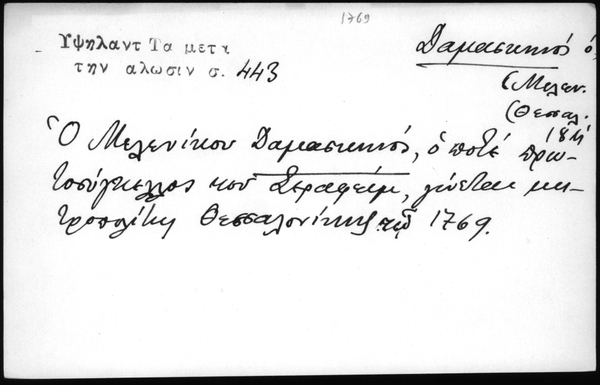 1769
Υψηλαντ Τα μετα
την αλωσιν σ. 443
Δαμασκηνός ὁ
(Μελεν.
(Θεσσαλ.
Ὁ Μελενίκου Δαμασκηνός, ὁ ποτέ πρω-
τοσύγκελλος τοῦ Σεραφείμ, γίνεται μη-
τροπολίτης Θεσσαλονίκης τῷ 1769.